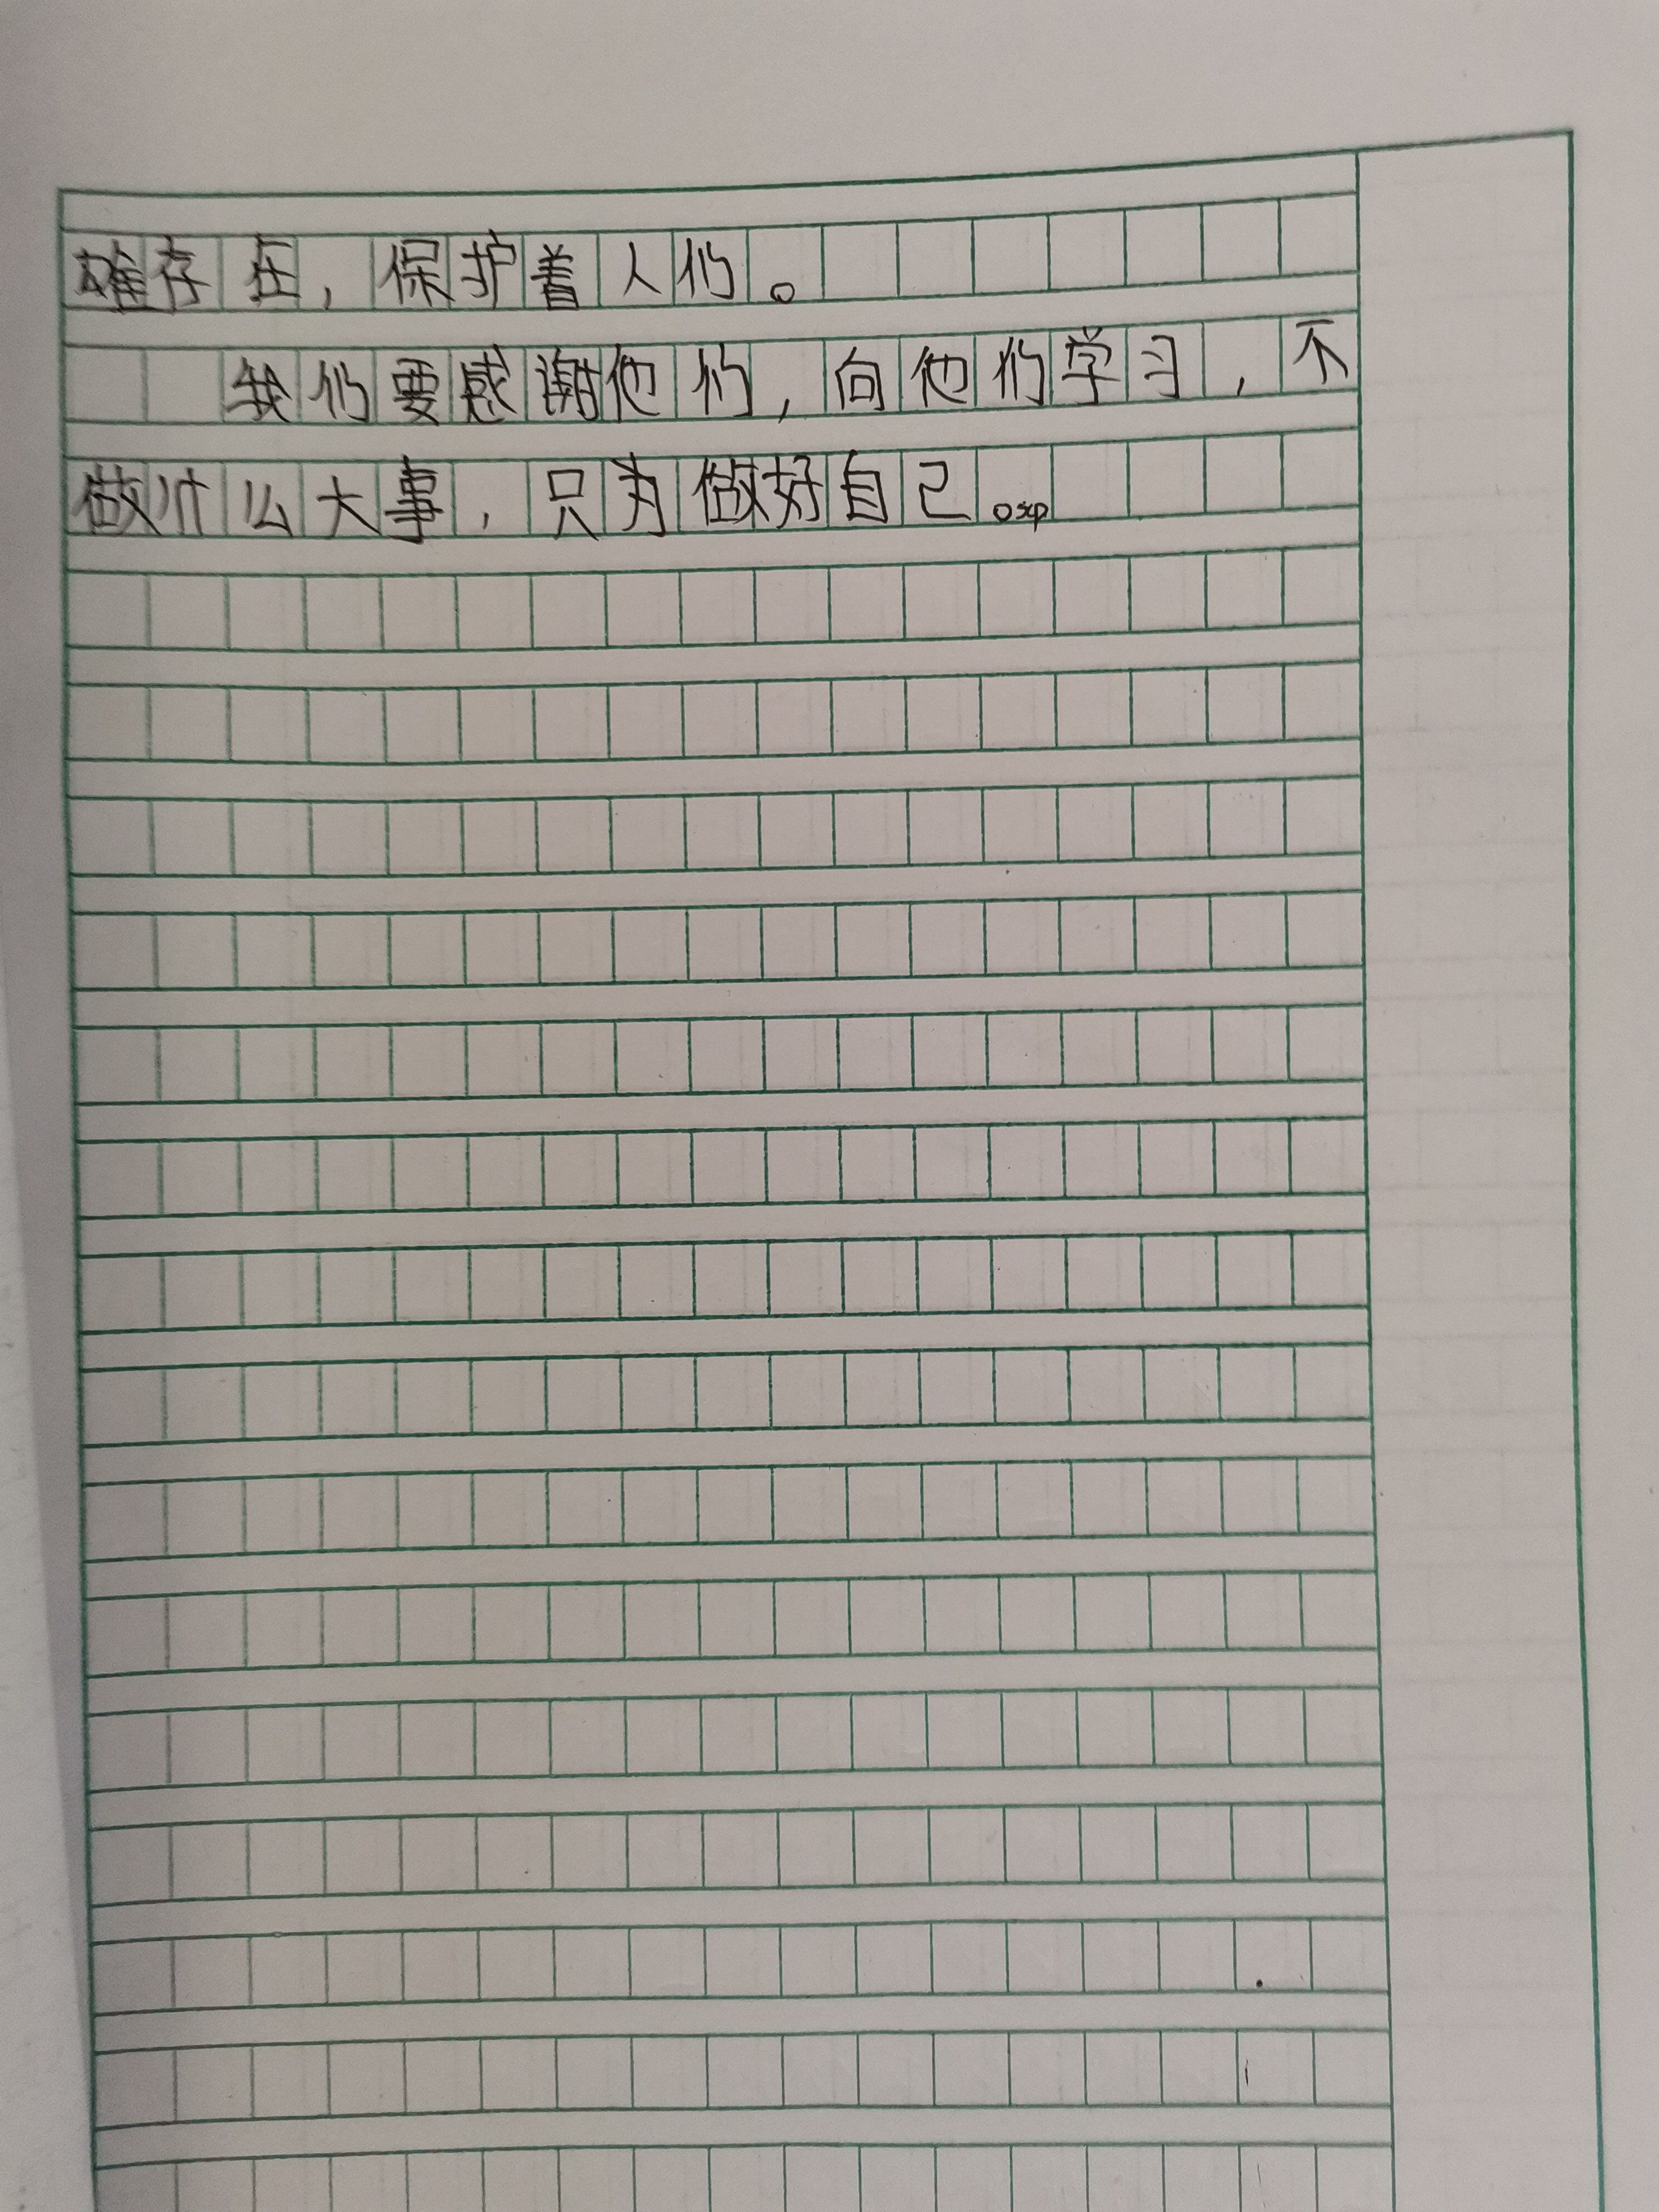 雄存在，保护着人们。
我们要感谢他们，向他们学习，不
做什么大事，只为做好自己。